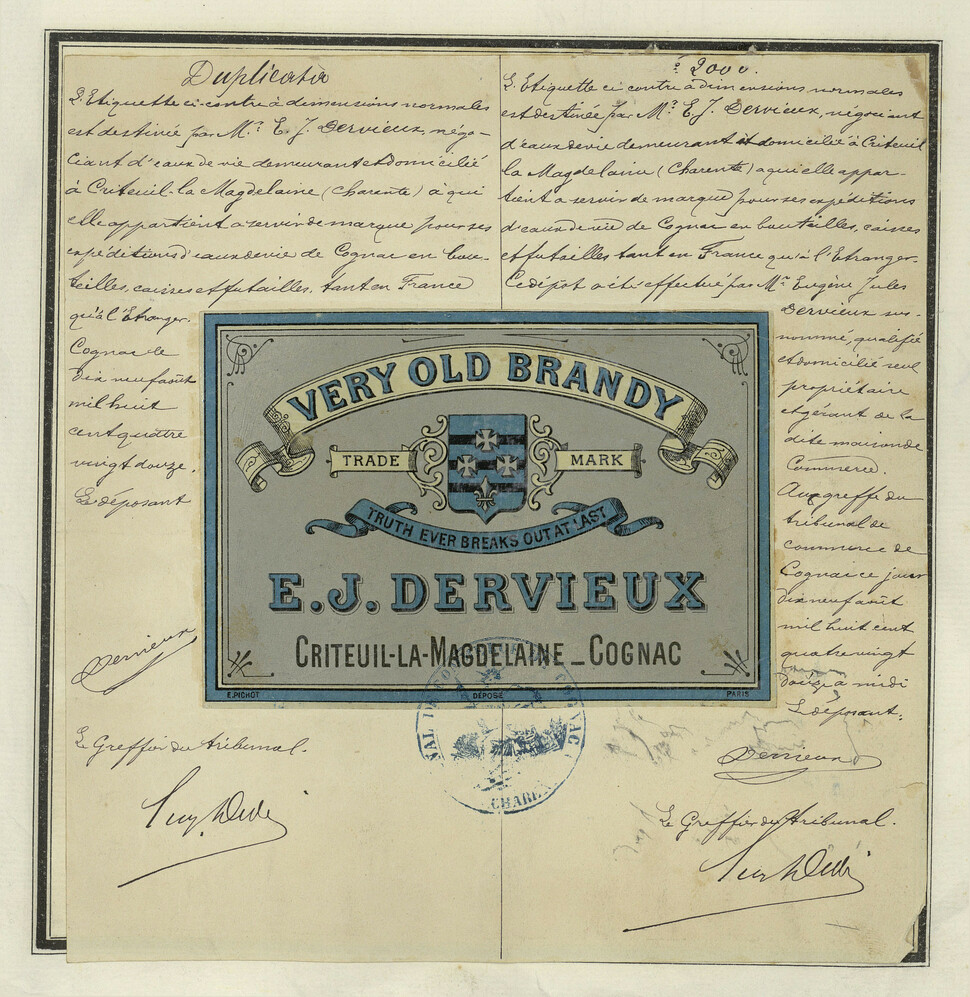 Duplicata
L'Etiquette ci-contre à dimensions normales
est destinée par Mr. E. J. Dervieux, négo-
ciant d'eaux de vie demeurant et domicilié
à Criteuil-la Magdelaine (Charente) à qui
elle appartient a servir de marque pour ses
expéditions d'eaux de vie de Cognac en bou-
teilles, caisses et futailles, tant en France
qu'à l'Etranger.
Cognac le
dix neuf août
mil huit
cent quatre
vingt douze.
Le déposant
Dervieux
Le Greffier du tribunal.
2000.
L'Etiquette ci contre à dimensions normales
est destinée par Mr. E. J. Dervieux, négociant
d'eaux de vie demeurant et domicilié à Criteuil
la Magdelaine (Charente) a qui elle appar-
tient a servir de marque pour ses expéditions
d'eaux de vie de Cognac en bouteilles, caisses
et futailles tant en France qu'à l'Etranger.
Ce dépôt a été effectué par Mr. Eugène Jules
Dervieux sus-
nommé, qualifié
et domicilié seul
propriétaire
et gérant de la
dite maison de
Commerce.
Au greffe du
tribunal de
commerce de
Cognac ce jour
dix neuf août
mil huit cent
quatre vingt
douze à midi
Le déposant.
Dervieux
Le Greffier du tribunal.
VERY OLD BRANDY
TRADE MARK
TRUTH EVER BREAKS OUT AT LAST
E.J. DERVIEUX
CRITEUIL-LA-MAGDELAINE_COGNAC
E.PICHOT DÉPOSÉ PARIS